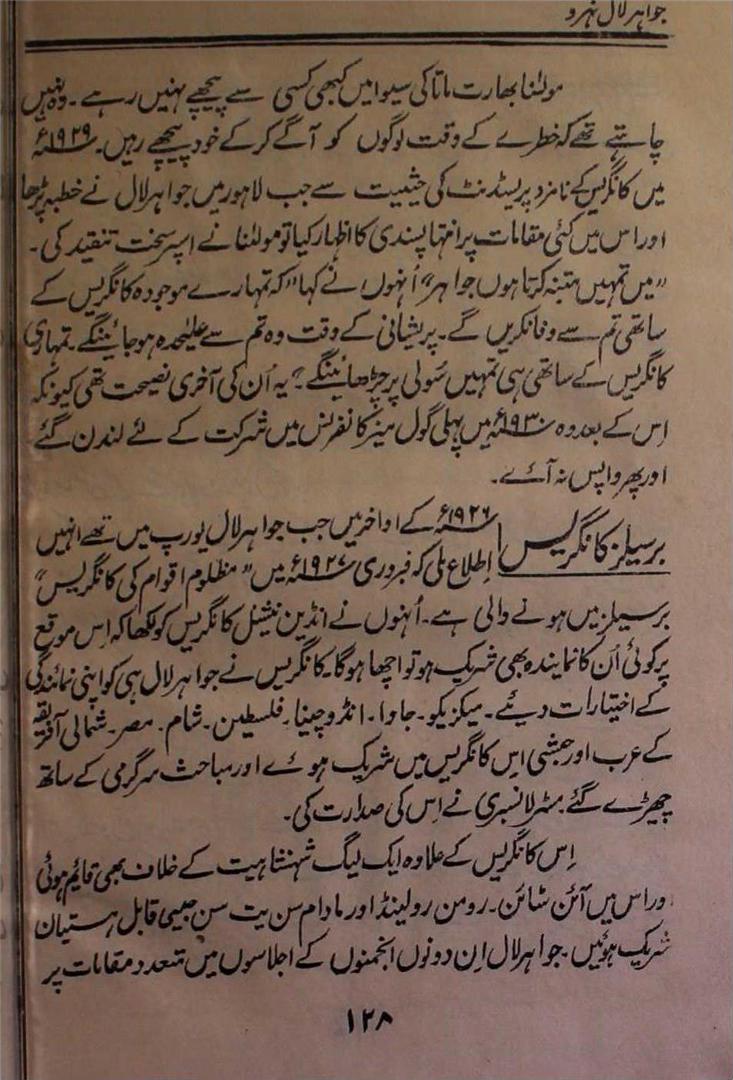 جواہرلال نہرو
مولٰنا بھارت ماتا کی سیوا میں کبھی کسی سے پیچھے نہیں رہے۔ وہ نہیں
چاہتے تھے کہ خطرے کے وقت لوگوں کو آگے کرکے خود پیچھے رہیں۔ ۱۹۲۹ء
میں کانگریس کے نامزد پریسڈنٹ کی حیثیت سے جب لاہور میں جواہرلال نے خطبہ پڑھا
اور اس میں کئی مقامات پر انتہا پسندی کا اظہار کیا تو مولٰنا نے اسپر سخت تنقید کی۔
"میں تمہیں متنبہ کرتا ہوں جواہر" اُنہوں نے کہا "کہ تمہارے موجودہ کانگریس کے
ساتھی تم سے وفا نکریں گے۔ پریشانی کے وقت وہ تم سے علیٰحدہ ہوجائینگے۔ تمہاری
کانگریس کے ساتھی ہی تمہیں سُولی پر چڑھائینگے"۔ یہ اُن کی آخری نصیحت تھی کیونکہ
اِس کے بعد وہ ۱۹۳۰ء میں پہلی گول میز کانفرنس میں شرکت کے لئے لندن گئے
اور پھر واپس نہ آئے۔
برسیلز کانگریس ۱۹۲۶ء کے اواخر میں جب جواہرلال یورپ میں تھے انہیں
اِطلاع ملی کہ فروری ۱۹۲۷ء میں "مظلوم اقوام کی کانگریس"
برسیلز میں ہونے والی ہے۔ اُنہوں نے انڈین نیشنل کانگریس کو لکھا کہ اِس موقع
پر کوئی اُن کا نمایندہ بھی شریک ہو تو اچھا ہوگا۔ کانگریس نے جواہرلال ہی کو اپنی نمائندگی
کے اختیارات دیئے۔ میکزیکو۔ جاوا۔ انڈوچینا۔ فلسطین۔ شام۔ مصر۔ شمالی آفریقہ
کے عرب اور حبشی اِس کانگریس میں شریک ہوئے اور مباحث سرگرمی کے ساتھ
چھیڑے گئے۔ مسٹر لانسبری نے اِس کی صدارت کی۔
اِس کانگریس کے علاوہ ایک لیگ شہنشاہیت کے خلاف بھی قایٔم ہوئی
اور اس میں آئن شائن۔ رومن رولینڈ اور مادام سن یت سن جیسی قابل ہستیان
شریک ہوئیں۔ جواہرلال اِن دونوں انجمنوں کے اجلاسوں میں متعدد مقامات پر
۱۲۸